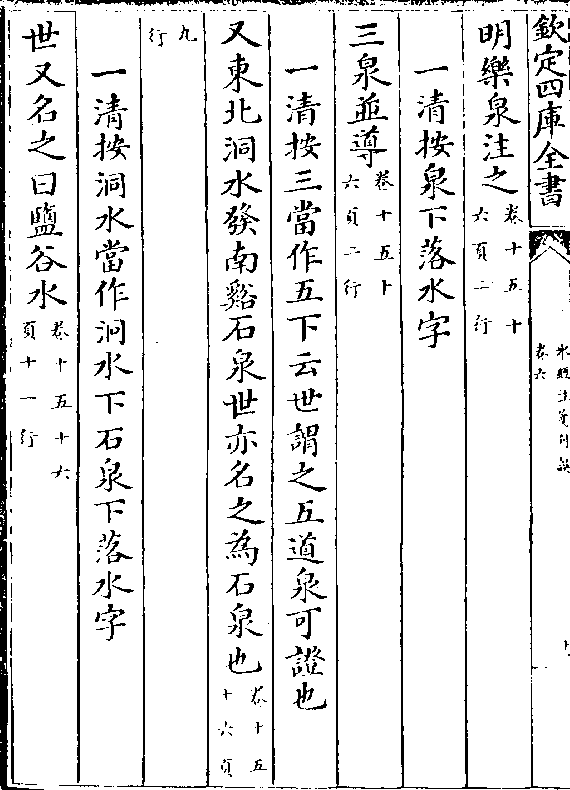 欽定四庫全書
水經注箋刊誤
卷六
明樂泉注之卷十五十六頁二行
一清按泉下落水字
三泉並導卷十五十六頁二行
一清按三當作五下云世謂之五道泉可證也
又東北洞水發南谿石泉世亦名之為石泉也卷十五十六頁
九行
一清按洞水當作泂水下石泉下落水字
世又名之曰鹽谷水卷十五十六頁十一行